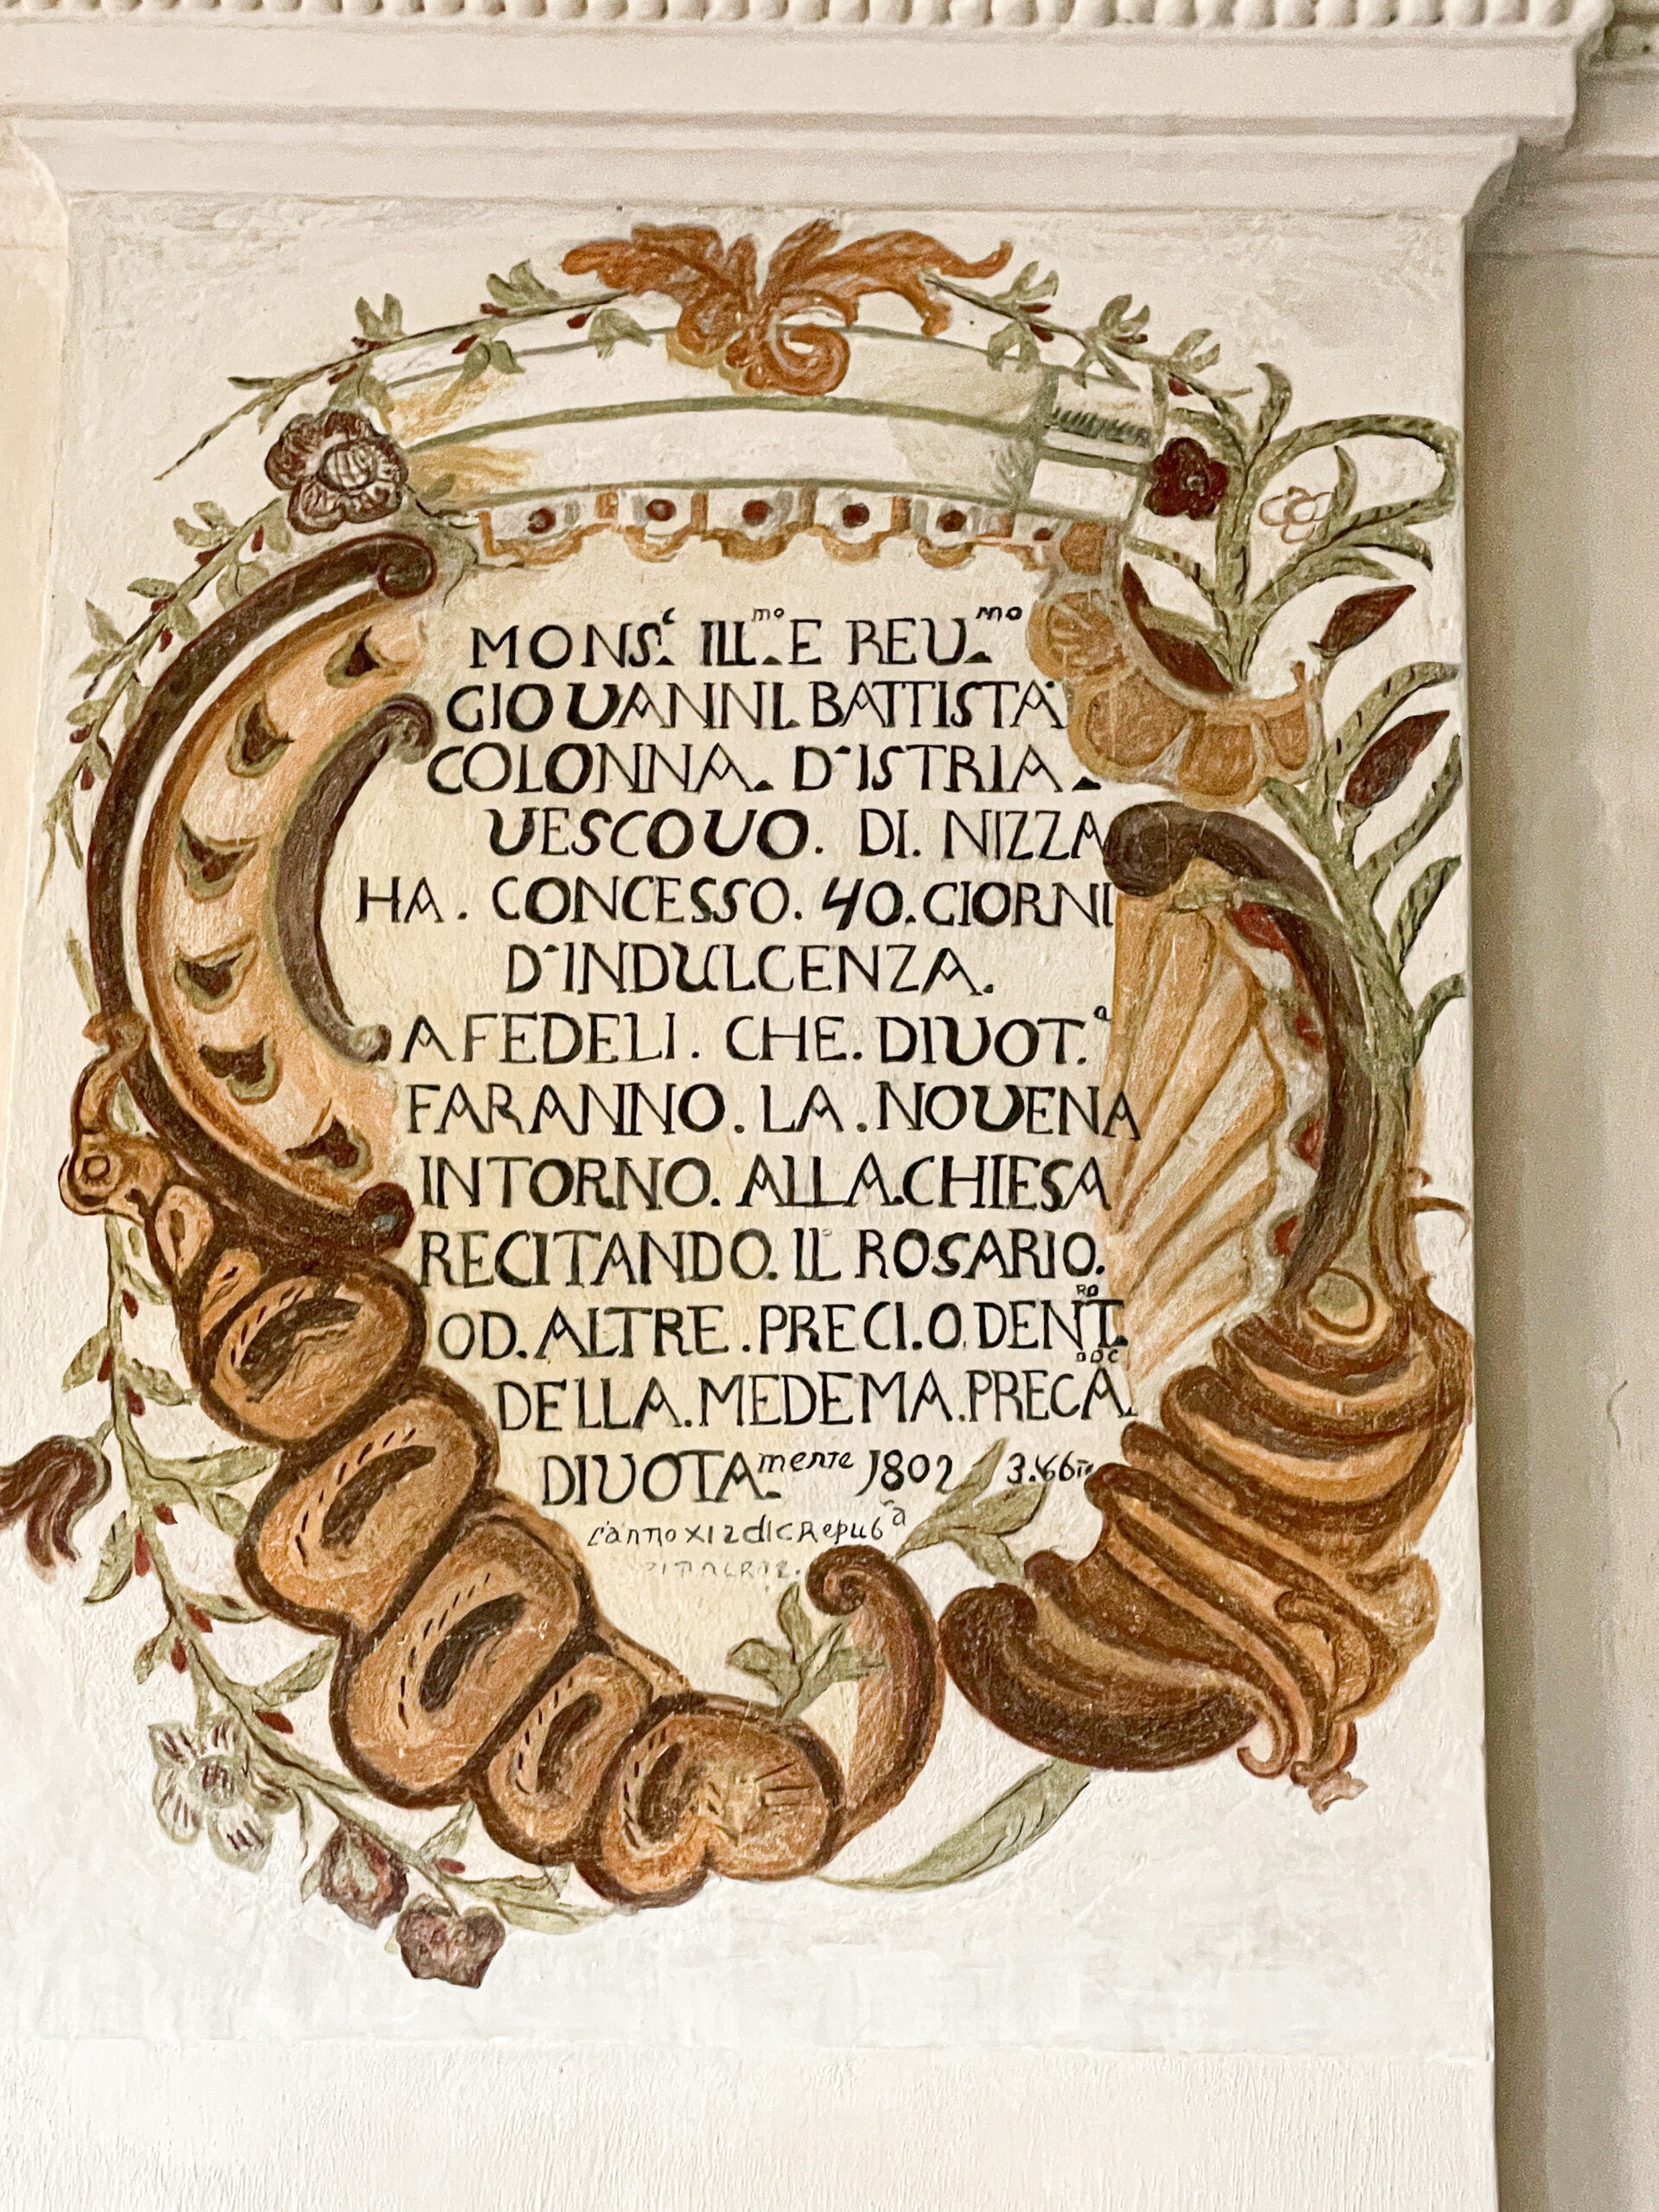 MONS.ʳ ILL.ᵐᵒ E REU.ᵐᵒ
GIOUANNI. BATTISTA
COLONNA. D'ISTRIA.
UESCOUO. DI. NIZZA
HA. CONCESSO. 40. GIORNI
D'INDULGENZA.
A FEDELI. CHE. DIUOT.ᵃ
FARANNO. LA. NOUENA
INTORNO. ALLA. CHIESA
RECITANDO. IL ROSARIO.
OD. ALTRE. PRECI. O DENT.ᴿᴼ
DELLA. MEDEMA. PRECA.
DIUOTA.ᵐᵉⁿᵗᵉ 1802
L'anno XI